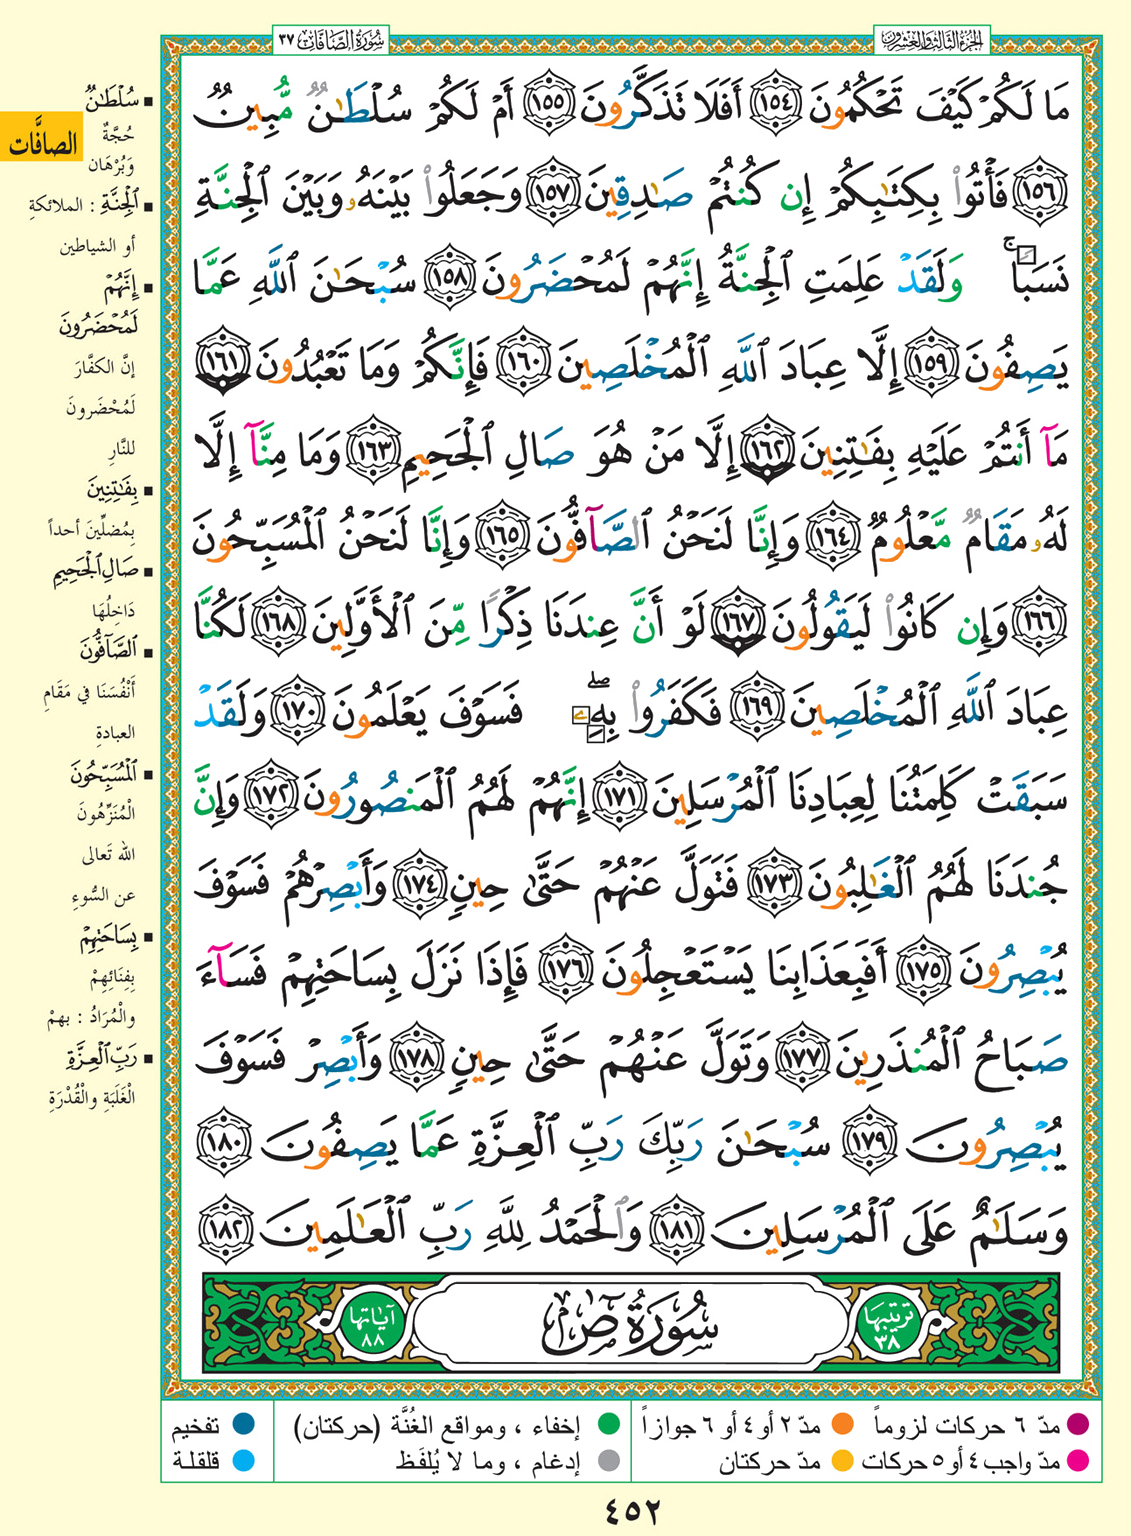 الجزء الثالث والعشرون
سُورَةُ الصَّافَّاتِ ٣٧
مَا لَكُمْ كَيْفَ تَحْكُمُونَ ١٥٤ أَفَلَا تَذَكَّرُونَ ١٥٥ أَمْ لَكُمْ سُلْطَٰنٌ مُّبِينٌ
١٥٦ فَأْتُوا۟ بِكِتَٰبِكُمْ إِن كُنتُمْ صَٰدِقِينَ ١٥٧ وَجَعَلُوا۟ بَيْنَهُۥ وَبَيْنَ ٱلْجِنَّةِ
نَسَبًا ۚ وَلَقَدْ عَلِمَتِ ٱلْجِنَّةُ إِنَّهُمْ لَمُحْضَرُونَ ١٥٨ سُبْحَٰنَ ٱللَّهِ عَمَّا
يَصِفُونَ ١٥٩ إِلَّا عِبَادَ ٱللَّهِ ٱلْمُخْلَصِينَ ١٦٠ فَإِنَّكُمْ وَمَا تَعْبُدُونَ ١٦١
مَآ أَنتُمْ عَلَيْهِ بِفَٰتِنِينَ ١٦٢ إِلَّا مَنْ هُوَ صَالِ ٱلْجَحِيمِ ١٦٣ وَمَا مِنَّآ إِلَّا
لَهُۥ مَقَامٌ مَّعْلُومٌ ١٦٤ وَإِنَّا لَنَحْنُ ٱلصَّآفُّونَ ١٦٥ وَإِنَّا لَنَحْنُ ٱلْمُسَبِّحُونَ
١٦٦ وَإِن كَانُوا۟ لَيَقُولُونَ ١٦٧ لَوْ أَنَّ عِندَنَا ذِكْرًا مِّنَ ٱلْأَوَّلِينَ ١٦٨ لَكُنَّا
عِبَادَ ٱللَّهِ ٱلْمُخْلَصِينَ ١٦٩ فَكَفَرُوا۟ بِهِۦ ۖ فَسَوْفَ يَعْلَمُونَ ١٧٠ وَلَقَدْ
سَبَقَتْ كَلِمَتُنَا لِعِبَادِنَا ٱلْمُرْسَلِينَ ١٧١ إِنَّهُمْ لَهُمُ ٱلْمَنصُورُونَ ١٧٢ وَإِنَّ
جُندَنَا لَهُمُ ٱلْغَٰلِبُونَ ١٧٣ فَتَوَلَّ عَنْهُمْ حَتَّىٰ حِينٍ ١٧٤ وَأَبْصِرْهُمْ فَسَوْفَ
يُبْصِرُونَ ١٧٥ أَفَبِعَذَابِنَا يَسْتَعْجِلُونَ ١٧٦ فَإِذَا نَزَلَ بِسَاحَتِهِمْ فَسَآءَ
صَبَاحُ ٱلْمُنذَرِينَ ١٧٧ وَتَوَلَّ عَنْهُمْ حَتَّىٰ حِينٍ ١٧٨ وَأَبْصِرْ فَسَوْفَ
يُبْصِرُونَ ١٧٩ سُبْحَٰنَ رَبِّكَ رَبِّ ٱلْعِزَّةِ عَمَّا يَصِفُونَ ١٨٠
وَسَلَٰمٌ عَلَى ٱلْمُرْسَلِينَ ١٨١ وَٱلْحَمْدُ لِلَّهِ رَبِّ ٱلْعَٰلَمِينَ ١٨٢
ترتيبها ٣٨
سُورَةُ صٓ
آياتها ٨٨
الصافَّات
سُلْطَٰنٌ
حُجَّةٌ
وَبُرْهَان
ٱلْجِنَّةِ : الملائكةِ
أو الشياطين
إِنَّهُمْ
لَمُحْضَرُونَ
إنَّ الكفَّارَ
لَمُحْضَرونَ
للنَّارِ
بِفَٰتِنِينَ
بِمُضلِّينَ أحداً
صَالِ ٱلْجَحِيمِ
دَاخِلُهَا
ٱلصَّآفُّونَ
أَنْفُسَنَا في مَقَامِ
العبادةِ
ٱلْمُسَبِّحُونَ
الْمُنَزِّهُونَ
الله تَعالى
عن السُّوءِ
بِسَاحَتِهِمْ
بِفِنَائِهِمْ
والْمُرَادُ : بهمْ
رَبِّ ٱلْعِزَّةِ
الْغَلَبَةِ والْقُدْرَةِ
مدّ ٦ حركات لزوماً
مدّ ٢ أو ٤ أو ٦ جوازاً
إخفاء ، ومواقع الغُنَّة (حركتان)
تفخيم
مدّ واجب ٤ أو ٥ حركات
مدّ حركتان
إدغام ، وما لا يُلفَظ
قلقلة
٤٥٢